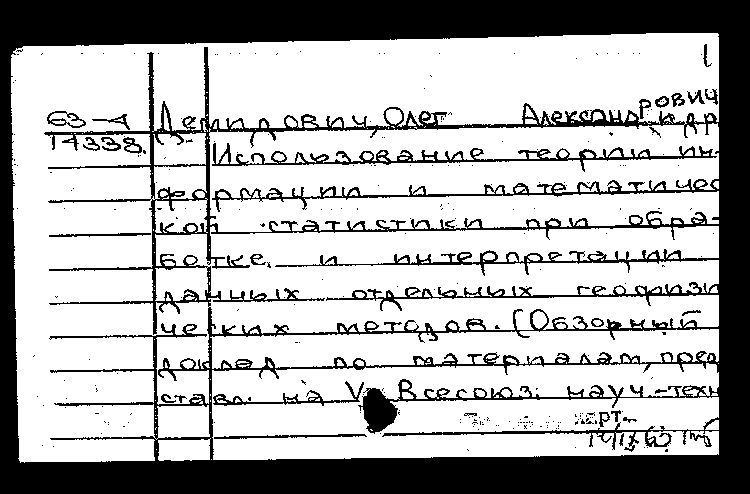 1
63-4 Демидович, Олег Александрович
14338. Использование теории ин-
формации и математичес
кой статистики при обра-
ботке и интерпретации
данных отдельных геофизи
ческих методов. (Обзорный
доклад по материалам, пред
ставл. на V Всесоюз. науч.-техн